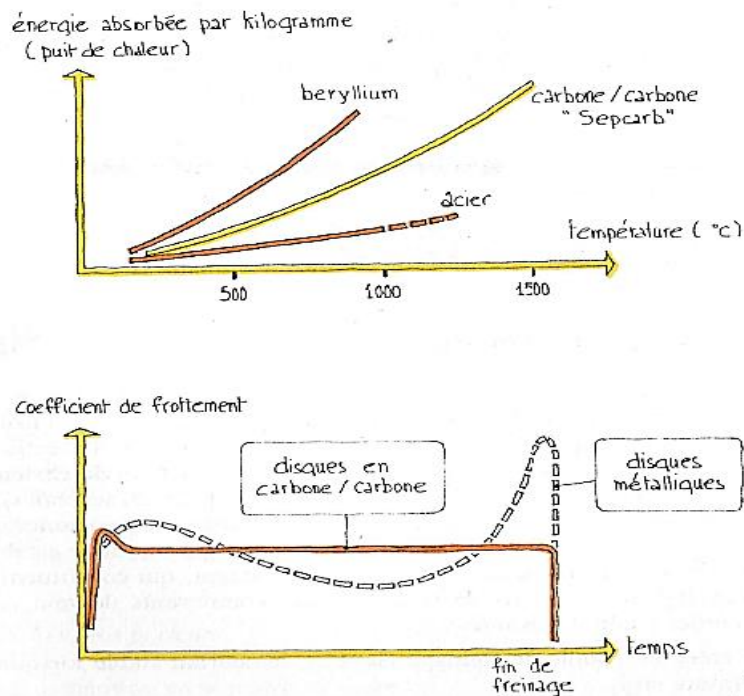 énergie absorbée par kilogramme
(puit de chaleur)
beryllium
carbone/carbone
"Sepcarb"
acier
température (°C)
500
1000
1500
coefficient de frottement
disques en
carbone/carbone
disques
métalliques
temps
fin de
freinage